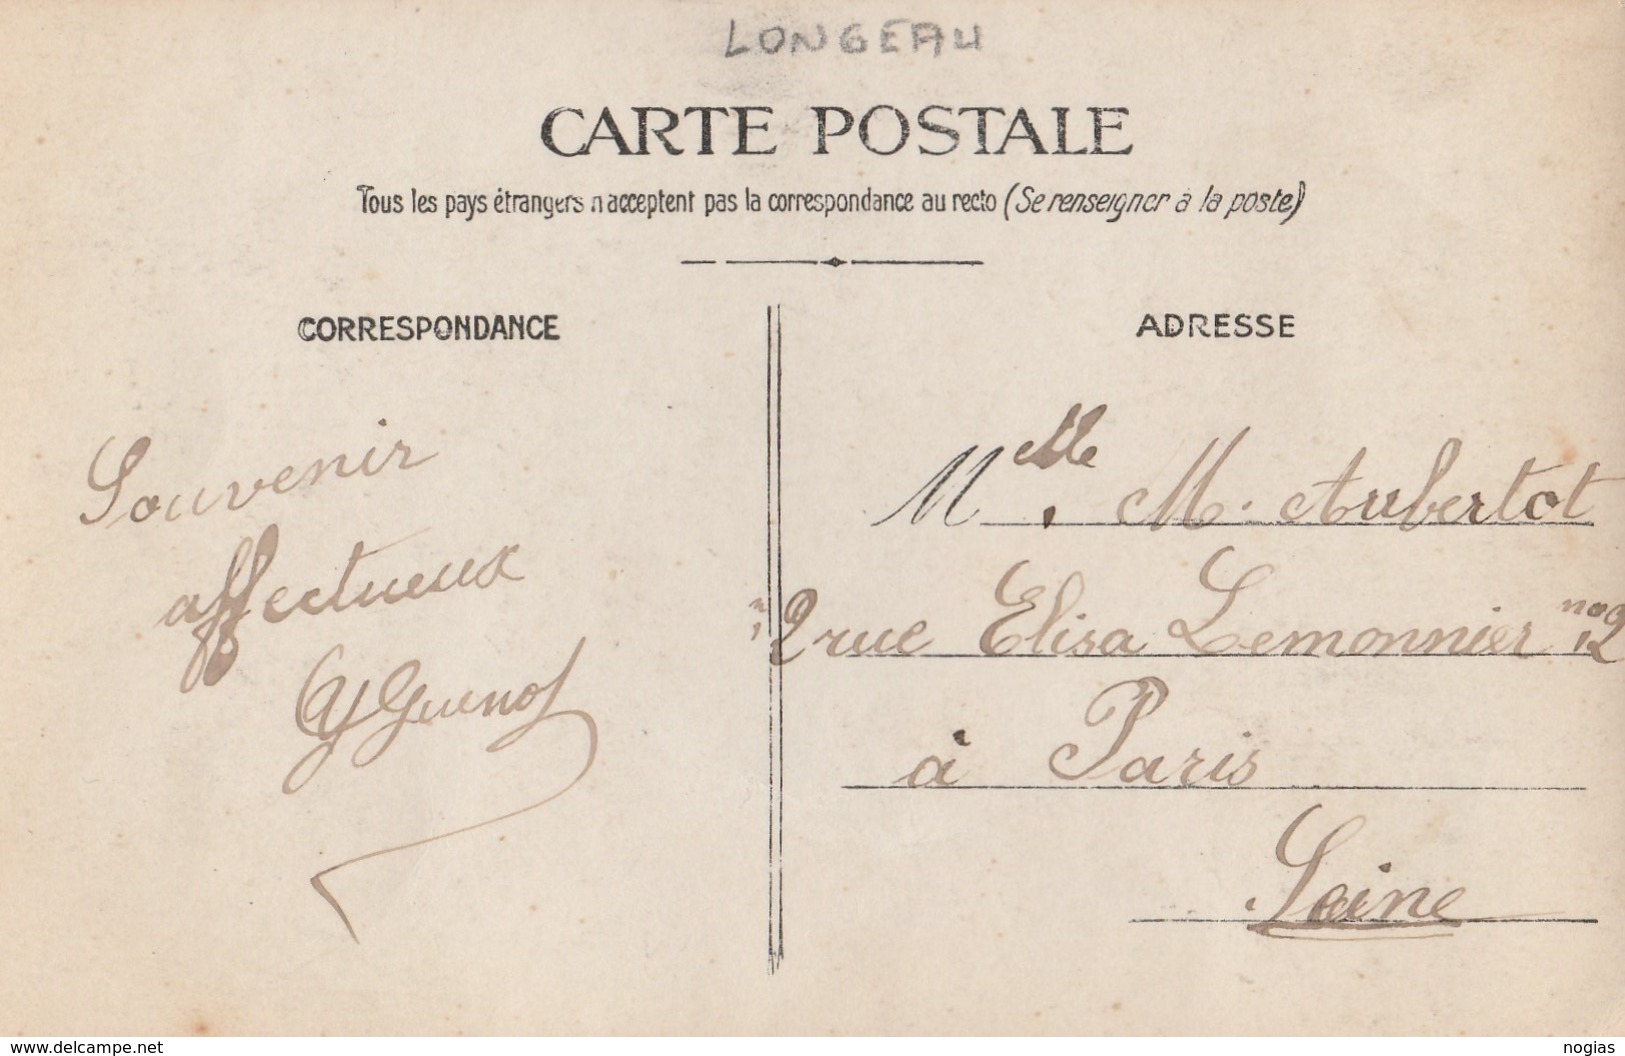 LONGEAU
CARTE POSTALE
Tous les pays étrangers n'acceptent pas la correspondance au recto (Se renseigner à la poste)
CORRESPONDANCE
Souvenir
affectueux
ADRESSE
Melle. M. Aubertot
12 rue Elisa Lemonnier no 12
à Paris
Seine
www.delcampe.net
nogias